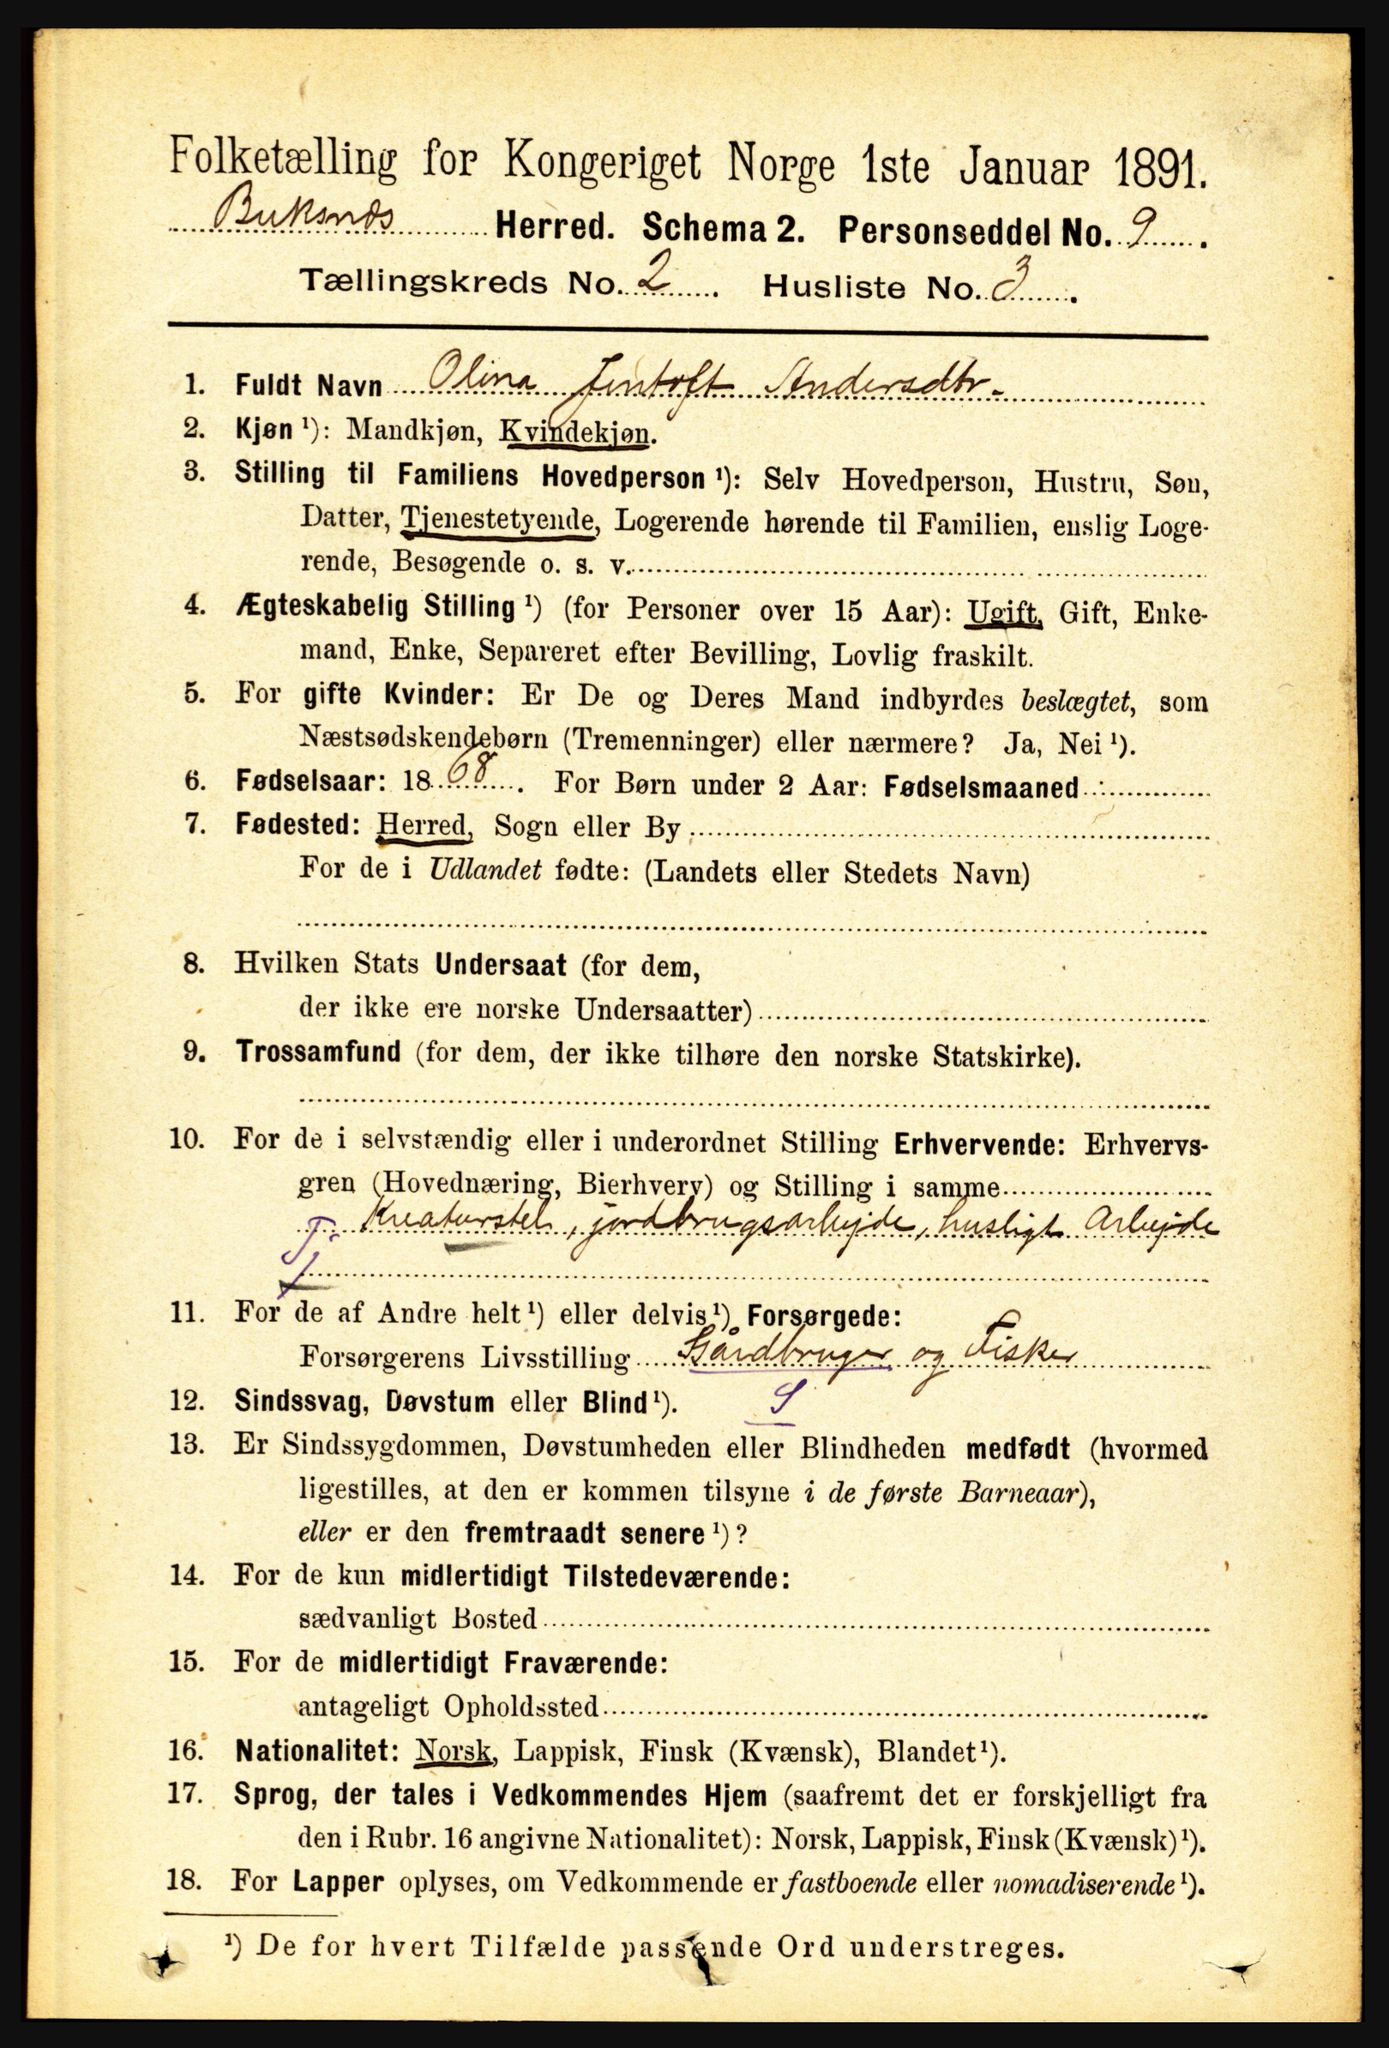 Folketælling for Kongeriget Norge 1ste Januar 1891.
Buksnæs Herred. Schema 2. Personseddel No. 9.
Tællingskreds No. 2. Husliste No. 3.
1. Fuldt Navn Olina Jentoft Andersdtr.
2. Kjøn ¹): Mandkjøn, Kvindekjøn.
3. Stilling til Familiens Hovedperson ¹): Selv Hovedperson, Hustru, Søn,
Datter, Tjenestetyende, Logerende hørende til Familien, enslig Loge-
rende, Besøgende o. s. v.
4. Ægteskabelig Stilling ¹) (for Personer over 15 Aar): Ugift, Gift, Enke-
mand, Enke, Separeret efter Bevilling, Lovlig fraskilt.
5. For gifte Kvinder: Er De og Deres Mand indbyrdes beslægtet, som
Næstsødskendebørn (Tremenninger) eller nærmere? Ja, Nei ¹).
6. Fødselsaar: 1868. For Børn under 2 Aar: Fødselsmaaned
7. Fødested: Herred, Sogn eller By
For de i Udlandet fødte: (Landets eller Stedets Navn)
8. Hvilken Stats Undersaat (for dem,
der ikke ere norske Undersaatter)
9. Trossamfund (for dem, der ikke tilhøre den norske Statskirke).
10. For de i selvstændig eller i underordnet Stilling Erhvervende: Erhvervs-
gren (Hovednæring, Bierhverv) og Stilling i samme
Tj. Kreaturstel, jordbrugsarbejde, husligt Arbejde
11. For de af Andre helt ¹) eller delvis ¹) Forsørgede:
Forsørgerens Livsstilling Gårdbruger og Fisker
12. Sindssvag, Døvstum eller Blind ¹). S
13. Er Sindssygdommen, Døvstumheden eller Blindheden medfødt (hvormed
ligestilles, at den er kommen tilsyne i de første Barneaar),
eller er den fremtraadt senere ¹)?
14. For de kun midlertidigt Tilstedeværende:
sædvanligt Bosted
15. For de midlertidigt Fraværende:
antageligt Opholdssted
16. Nationalitet: Norsk, Lappisk, Finsk (Kvænsk), Blandet ¹).
17. Sprog, der tales i Vedkommendes Hjem (saafremt det er forskjelligt fra
den i Rubr. 16 angivne Nationalitet): Norsk, Lappisk, Finsk (Kvænsk) ¹).
18. For Lapper oplyses, om Vedkommende er fastboende eller nomadiserende ¹).
¹) De for hvert Tilfælde passende Ord understreges.